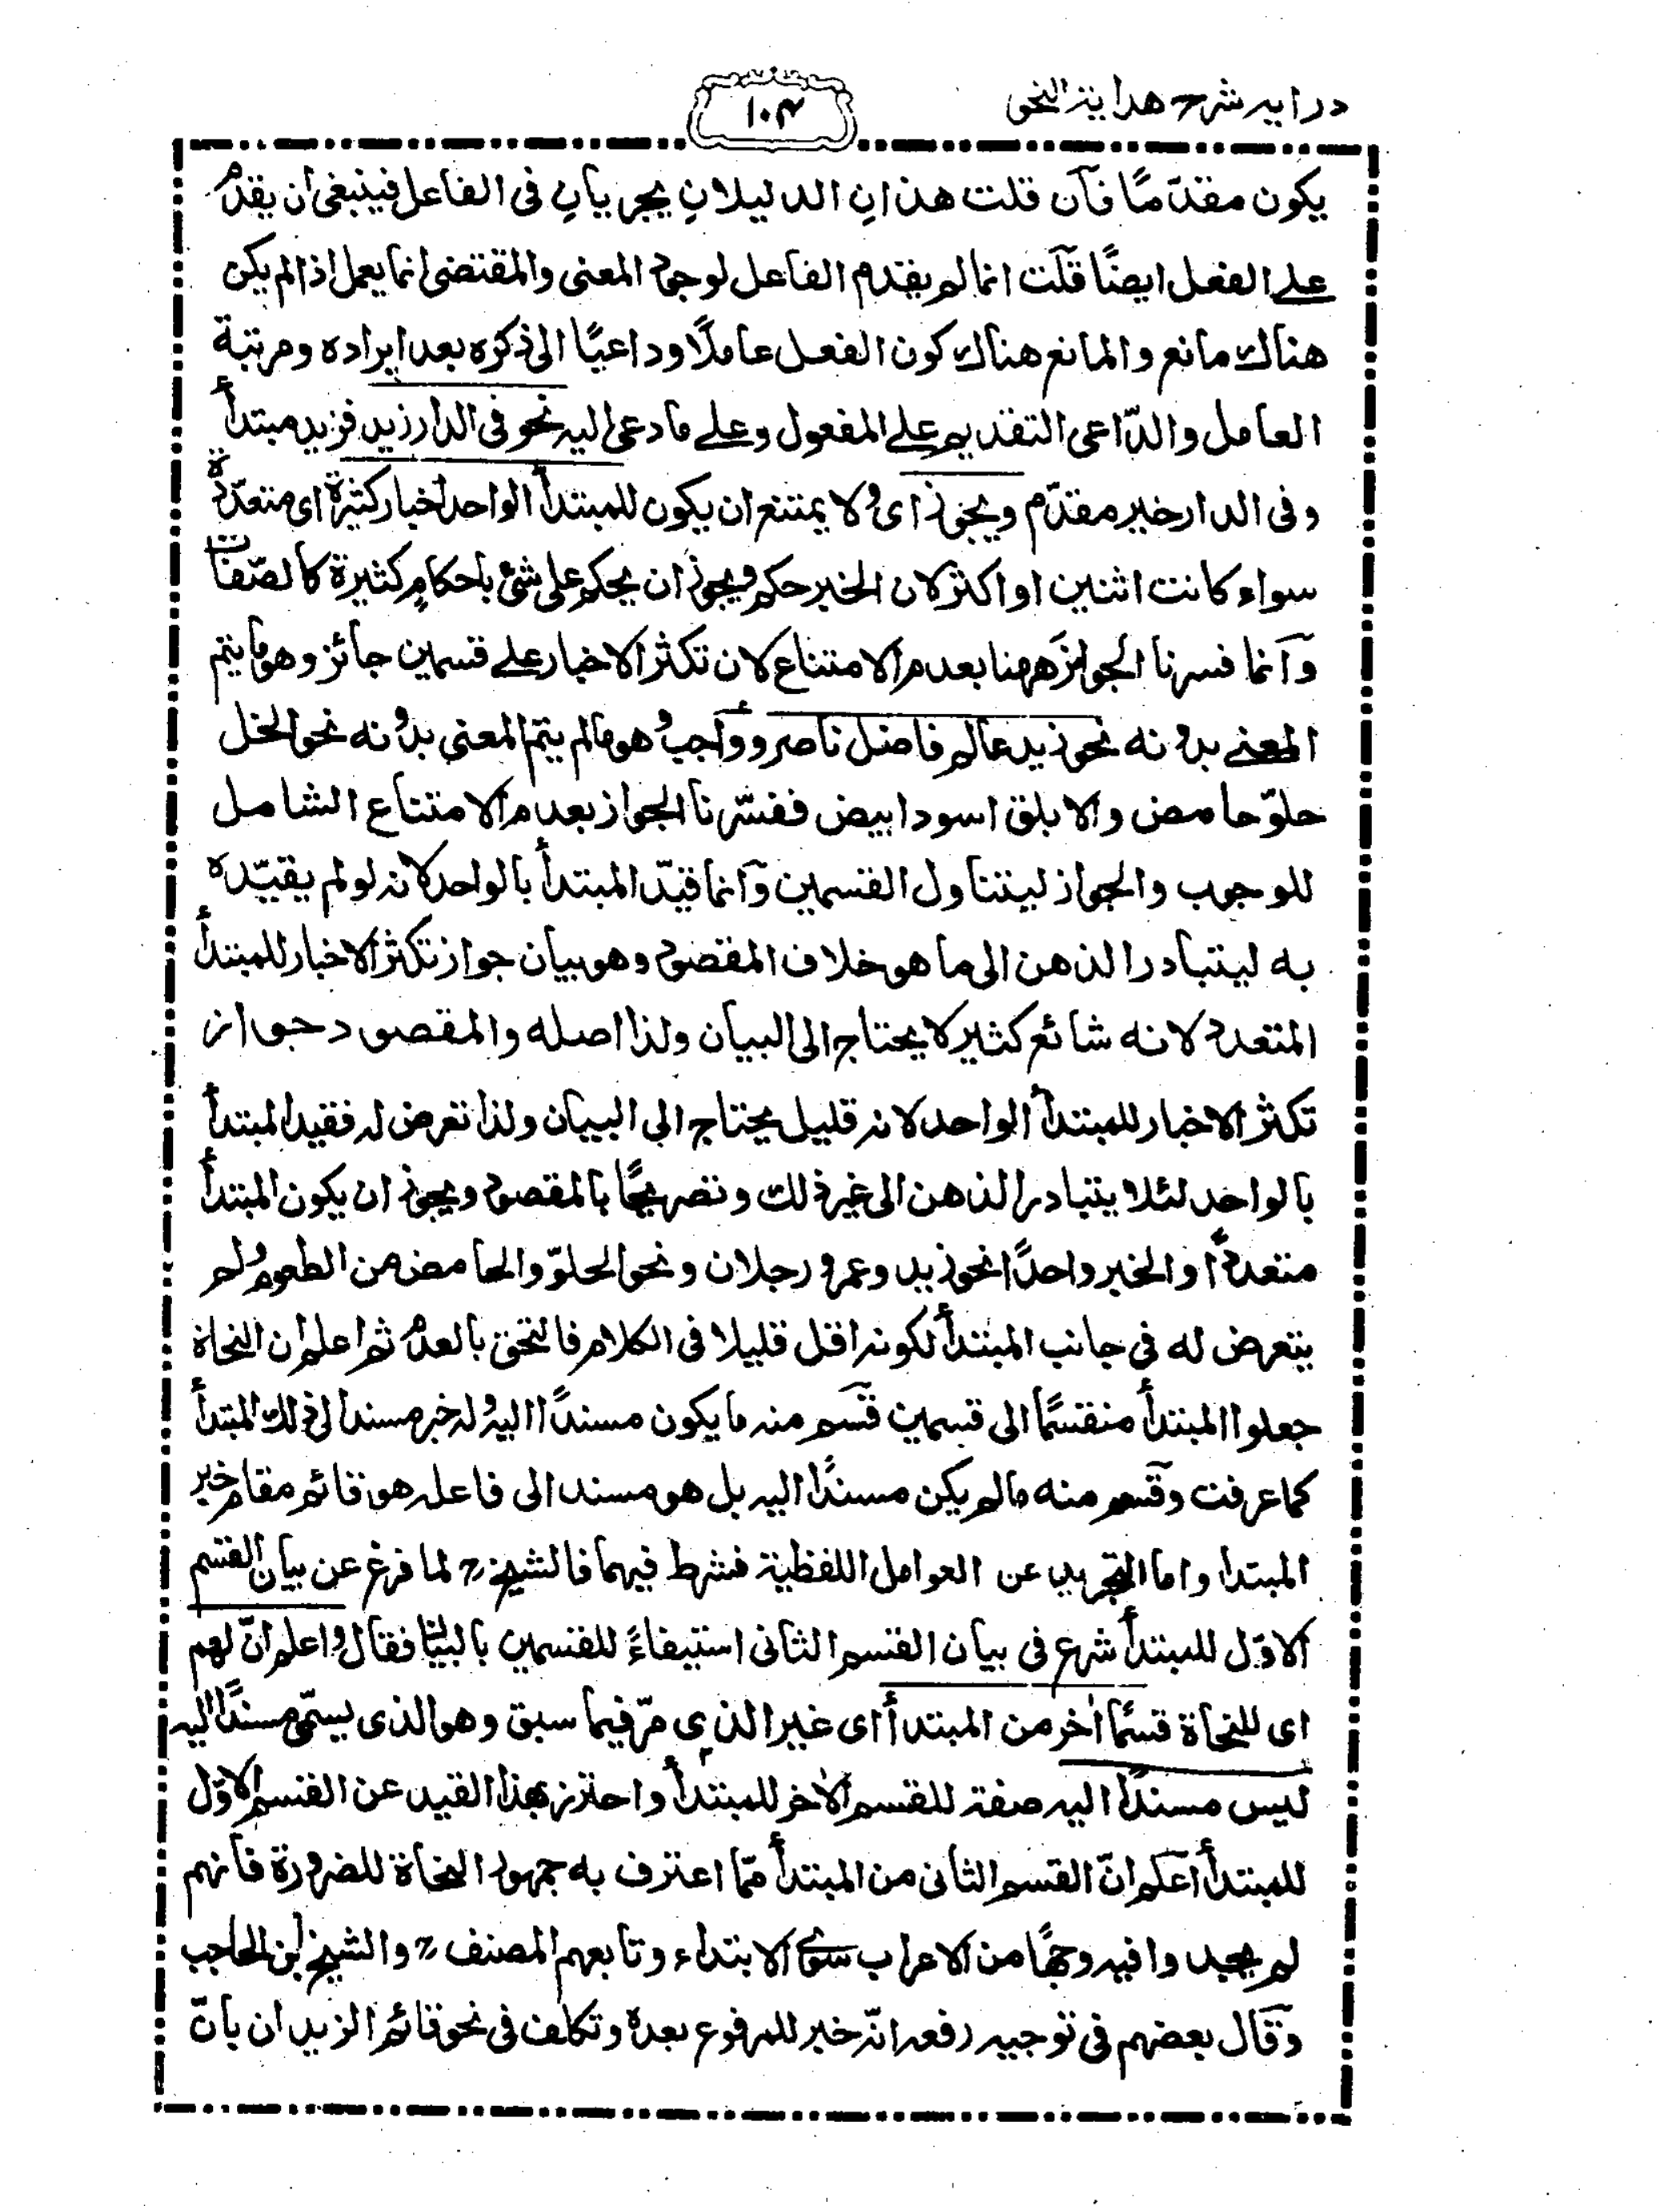 درايه شرح هداية النحو
١٠٤
يكون مقدّمًا فآن قلت هذانِ الدليلانِ يجريانِ فى الفاعل فينبغى ان يقدم
على الفعل ايضًا قلت انما لم يقدم الفاعل لوجود المعنى والمقتضى انما يعمل اذا لم يكن
هناك مانع والمانع هناك كون الفعل عاملًا وداعيًا الى ذكره بعد ايراده ومرتبة
العامل والدّاعى التقديم على المفعول وعلى ما دعى اليه نحو فى الدار زيد فزيد مبتدأ
وفى الدار خبر مقدّم ويجوز اى ولا يمتنع ان يكون للمبتدأ الواحد اخبار كثيرة اى متعدّدة
سواء كانت اثنين او اكثر لان الخبر حكم ويجوز ان يحكم على شئ باحكامٍ كثيرة كالصّفات
وآنما فسرنا الجواز ههنا بعدم الامتناع لان تكثر الاخبار على قسمين جائز وهو ما يتم
المعنى بدونه نحو زيد عالم فاضل ناصر وواجب وهو مالم يتم المعنى بدونه نحو الخل
حلوّ حامض والابلق اسود ابيض ففسّرنا الجواز بعدم الامتناع الشامل
للوجوب والجواز ليتناول القسمين وآنما قيّد المبتدأ بالواحد لانه لو لم يقيّده
به ليتبادر الذهن الى ما هو خلاف المقصود وهو بيان جواز تكثر الاخبار للمبتدأ
المتعدد لانه شائع كثير لا يحتاج الى البيان ولذا اصله والمقصود جواز
تكثر الاخبار للمبتدأ الواحد لانه قليل يحتاج الى البيان ولذا تعرض له فقيد المبتدأ
بالواحد لئلا يتبادر الذهن الى غير ذلك وتصريحًا بالمقصود ويجوز ان يكون المبتدأ
متعددًا والخبر واحدًا نحو زيد وعمرو رجلان ونحو الحلوّ والحامض من الطعوم ولم
يتعرض له فى جانب المبتدأ لكونه اقل قليلا فى الكلام فالتحق بالعدم ثم اعلم ان النحاة
جعلوا المبتدأ منقسمًا الى قسمين قسم منه ما يكون مسندًا اليه وله خبر مسند الى ذلك المبتدأ
كما عرفت وقسم منه مالم يكن مسندًا اليه بل هو مسند الى فاعله هو قائم مقام خبر
المبتدا واما التجريد عن العوامل اللفظية فشرط فيهما فالشيخ رح لما فرغ عن بيان القسم
الاوّل للمبتدأ شرع فى بيان القسم الثانى استيفاءً للقسمين بالبيان فقال واعلم انّ لهم
اى للنحاة قسمًا اخر من المبتدأ اى غير الذى مرّ فيما سبق وهو الذى يسمّى مسندًا اليه
ليس مسندًا اليه صفة للقسم الاخر للمبتدأ واحترز بهذا القيد عن القسم الاوّل
للمبتدأ آعلم انّ القسم الثانى من المبتدأ ممّا اعترف به جمهور النحاة للضرورة فانهم
لم يجيدوا فيه وجهًا من الاعراب سوى الابتداء وتابعهم المصنف رح والشيخ ابن الحاجب
وقال بعضهم فى توجيه رفعه انّه خبر للمرفوع بعده وتكلف فى نحو قائم الزيدان بانّ